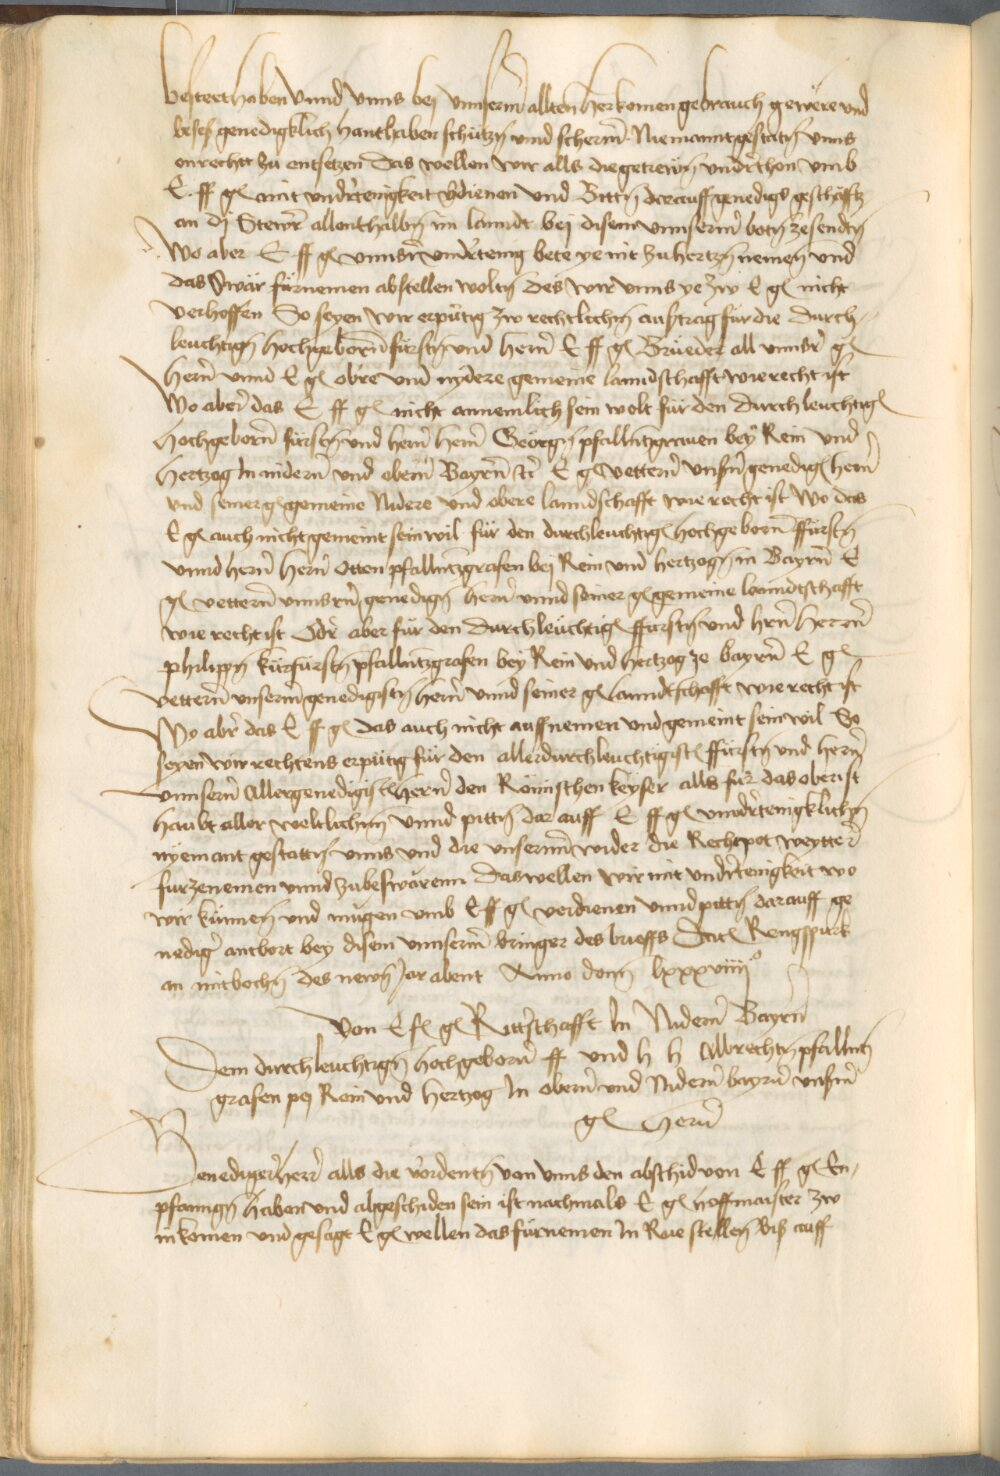 bestett haben vnnd vnns bei vnnserm allten herkomen gebrauch gewere vnd
beses genedigklich hanthaben schützn vnd scherm Niemannt gestatn vnns
onrecht zu entsetzen Das wellen wir alls die getrewn vndrthon vmb
E ff gl mit vndrtenigkeit vdienen vnd Bittn darauff genedigs geschäfft
an dj Stewr allenthalbn im lanndt bei disem vnnserm botn zesendn
Wo aber E ff gl vnnsr vndrtenig bete ye nit zu hertzn nemen vnnd
das swär fürnemen abstellen woltn des wir vnns ye zw E gl nicht
verhoffen So seyen wir erpütig zw rechtlichn austrag für die durch
leuchtign hochgeborn fürstn vnd herrn E ff gl Brüeder all vnnsr gl
herrn vnnd E gl obre vnd nydere gemeine lanndschafft wie recht ist
Wo aber das E ff gl nicht annemlich sein wolt für den durchleuchtigl
hochgeborn fürstn vnd herrn hern Georgn pfallntzgrauen bey Rein vnd
hertzog In nidern vnd obern Bayrn etc E gl vettern vnsrn genedigl hern
vnd seiner gl gemeine Nidere vnd obere lanndschafft wie recht ist Wo das
E gl auch nicht gemeint sein wil für den durchleuchtigl hochgeborn ffürstn
vnnd hern hern Otten pfallntzgrafen bei Rein vnd hertzogn in Bayrn E
gl vettern vnnsrn genedign hern vnnd seiner gl gemeine lanndtschafft
wie recht ist Odr aber für den durchleuchtigl ffürstn vnd hrn herrn
philippn kürfürstn pfallntzgrafen bey Rein vnd hertzog ze bayrn E gl
vettern vnserm genedigistn hern vnnd seiner gl lanndtschafft wie recht ist
Wo abr das E ff gl das auch nicht auffnemen vnd gemeint sein wil So
seyen wir rechtens erpütig für den allerdurchleuchtigistl ffürstn vnd hern
vnnsern Allergenedigistl hern den Römischen keyser alls für das oberist
haubt aller weltlichn vnnd pittn dar auff E ff gl vnndrtenigklichn
nyemant gestattn vnns vnd die vnsernn wider die Rechpot weytter
furzenemen vnnd zubeswärenn Das wellen wir mit vndrtenigkeit wo
wir künnen vnd mügen vmb E ff gl verdienen vnnd pittn darauff ge
nedig antbort bey disem vnnserm bringer des brieffs Datl Rengspurk
an mitbochn des newn Jar abent Anno domj lxxxviiijo
Von E fl gl Rittrschafft In Nidern Bayrn
Dem durchleuchtign hochgeborn ff vnd h h Albrechtn pfallntz
grafen pej Rein vnd hertzog In obern vnd Nidern bayrn vnsrm
gl hern
Genediger herr alls die vordentn von vnns den abschid von E ff gl En
pfanngn haben vnd abgeschiden sein ist nachmals E gl hoffmaister zw
in komen vnd gesagt E gl wellen das fürnemen In Rue stellen biß auff